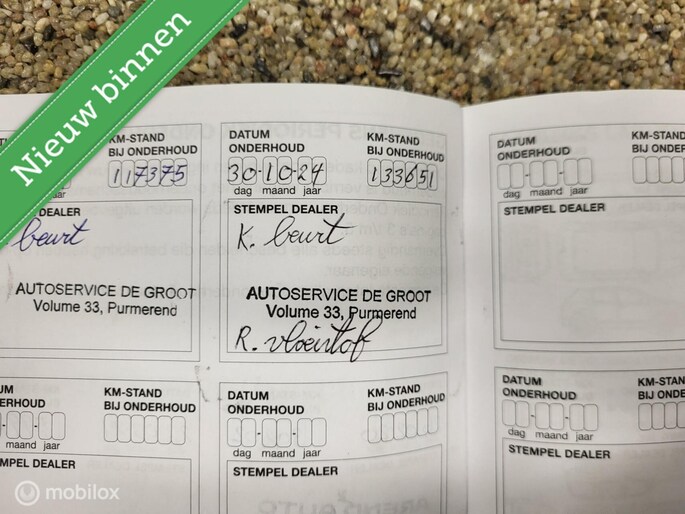 Nieuw binnen
KM-STAND
BIJ ONDERHOUD
117375
jaar
DEALER
beurt
AUTOSERVICE DE GROOT
Volume 33, Purmerend
DATUM
ONDERHOUD
KM-STAND
BIJ ONDERHOUD
30-10-24
133651
dag maand jaar
STEMPEL DEALER
K. beurt
AUTOSERVICE DE GROOT
Volume 33, Purmerend
R. vloeistof
DATUM
ONDERHOUD
KM-STAND
BIJ ONDERHOUD
dag maand jaar
STEMPEL DEALER
UM
ERHOUD
KM-STAND
BIJ ONDERHOUD
maand jaar
MPEL DEALER
DATUM
ONDERHOUD
KM-STAND
BIJ ONDERHOUD
dag maand jaar
STEMPEL DEALER
DATUM
ONDERHOUD
KM-STA
BIJ OND
dag maand jaar
STEMPEL DEALER
mobilox